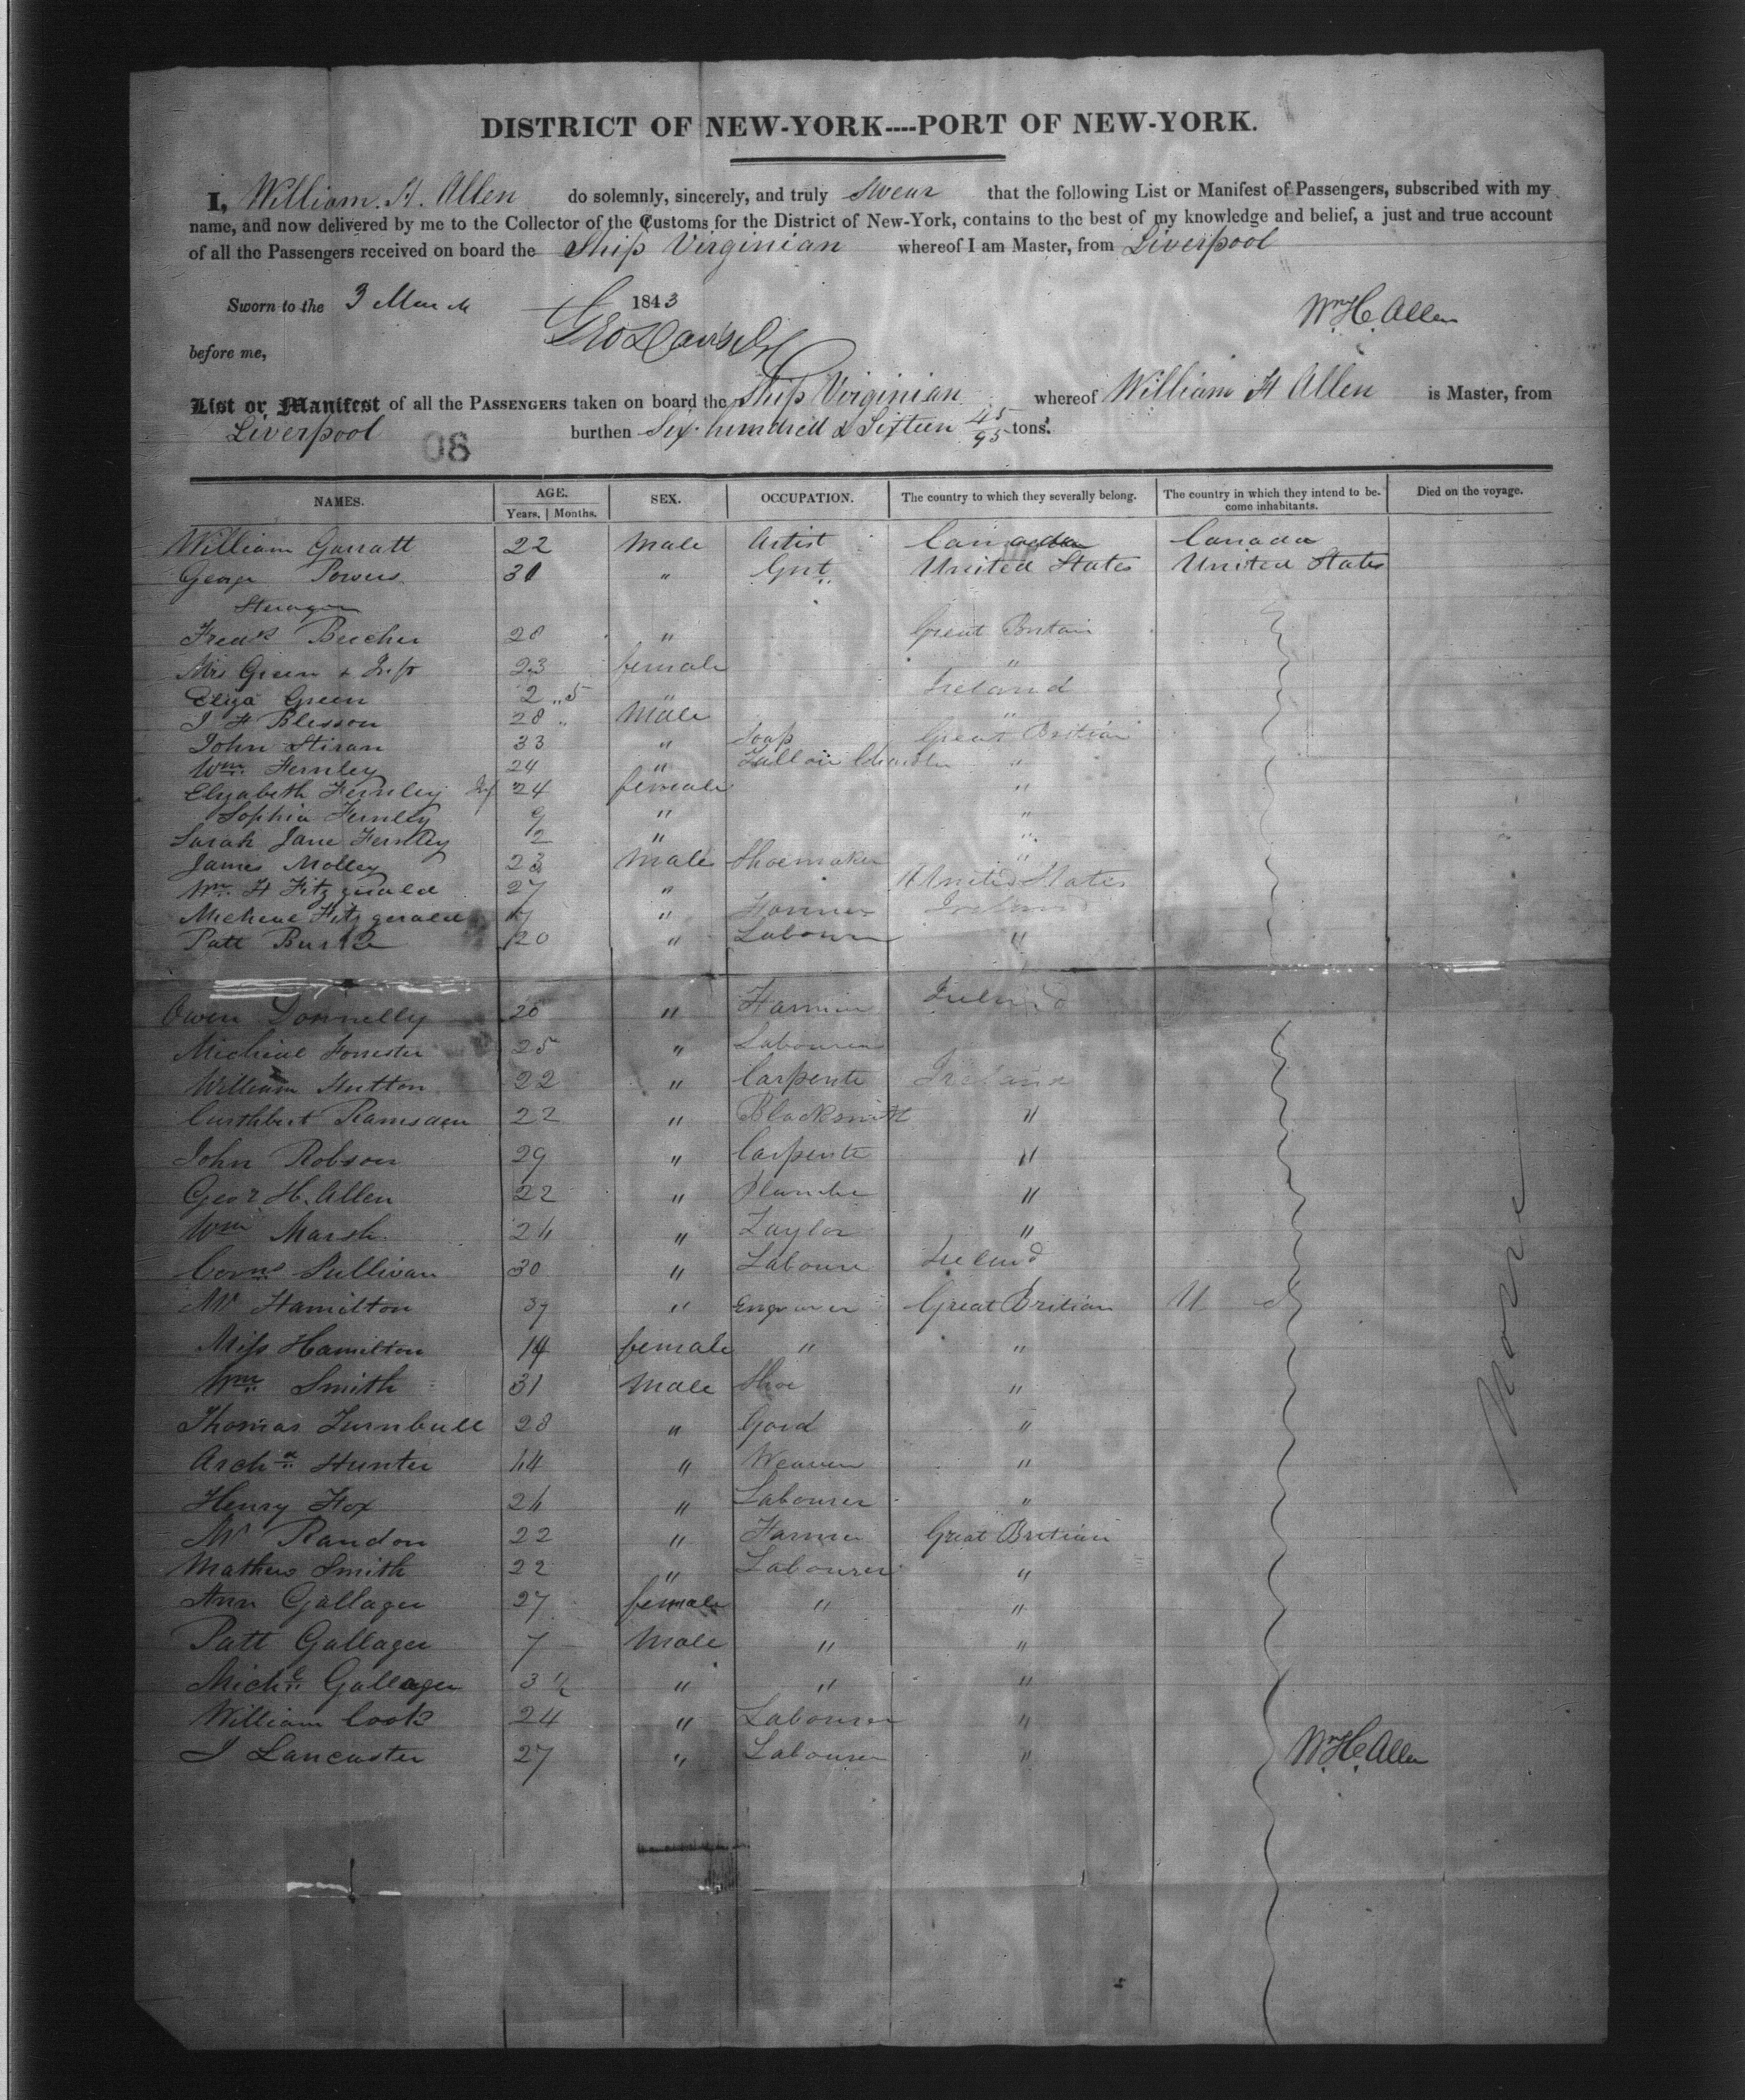 DISTRICT OF NEW-YORK----PORT OF NEW-YORK.
I, William. H. Allen do solemnly, sincerely, and truly swear that the following List or Manifest of Passengers, subscribed with my
name, and now delivered by me to the Collector of the Customs for the District of New-York, contains to the best of my knowledge and belief, a just and true account
of all the Passengers received on board the Ship Virginian whereof I am Master, from Liverpool
Sworn to the 3 March 1843 Wm H. Allen
before me,
List or Manifest of all the PASSENGERS taken on board the Ship Virginian whereof William H Allen is Master, from
Liverpool burthen Six hundred & Sixteen 45/95 tons.
08
NAMES. AGE. SEX. OCCUPATION. The country to which they severally belong. The country in which they intend to be- Died on the voyage.
Years. | Months. come inhabitants.
William Garratt 22 Male Artist Canada Canada
George Powers 31 " Gnt United States United States
Steerage
Fredk Beecher 20 " Great Britain
Mrs Green + Inft 23 female "
Eliza Green 2 " 5 " Ireland
J H Blesson 28 " Male "
John Stiran 33 " Soap Great Britian
Wm Fernley 24 " Tallow Chandler "
Elizabeth Fernley Inf 24 female "
Sophia Fernley 9 " "
Sarah Jane Fernley 2 " "
James Molley 23 Male Shoemaker "
Wm H Fitzgerald 27 " United States
Micheal Fitzgerald " Farmer Ireland
Patt Burke 20 " Labourer "
Owen Donnelly 20 " Farmer Ireland
Micheal Forrester 25 " Labourer
William Hutton 22 " Carpente Ireland
Cuthbert Ramsden 22 " Blacksmith "
John Robson 29 " Carpente "
Geo H. Allen 22 " "
Wm Marsh 24 " Taylor "
Corns Sullivan 30 " Laboure Ireland
Mr Hamilton 39 " Engraver Great Britian U
Miss Hamilton 14 female " "
Wm Smith 31 Male Shoe "
Thomas Turnbull 28 " Gard "
Archd Hunter 44 " Weaver "
Henry Fox 24 " Labourer "
Mr Randon 22 " Farmer Great Britian
Mathew Smith 22 " Labourer "
Ann Gallager 27 female " "
Patt Gallager 7 Male " "
Michl Gallager 3 1/2 " " "
William Cook 24 " Labourer "
J Lancaster 27 " Labourer "
Wm H. Allen
None